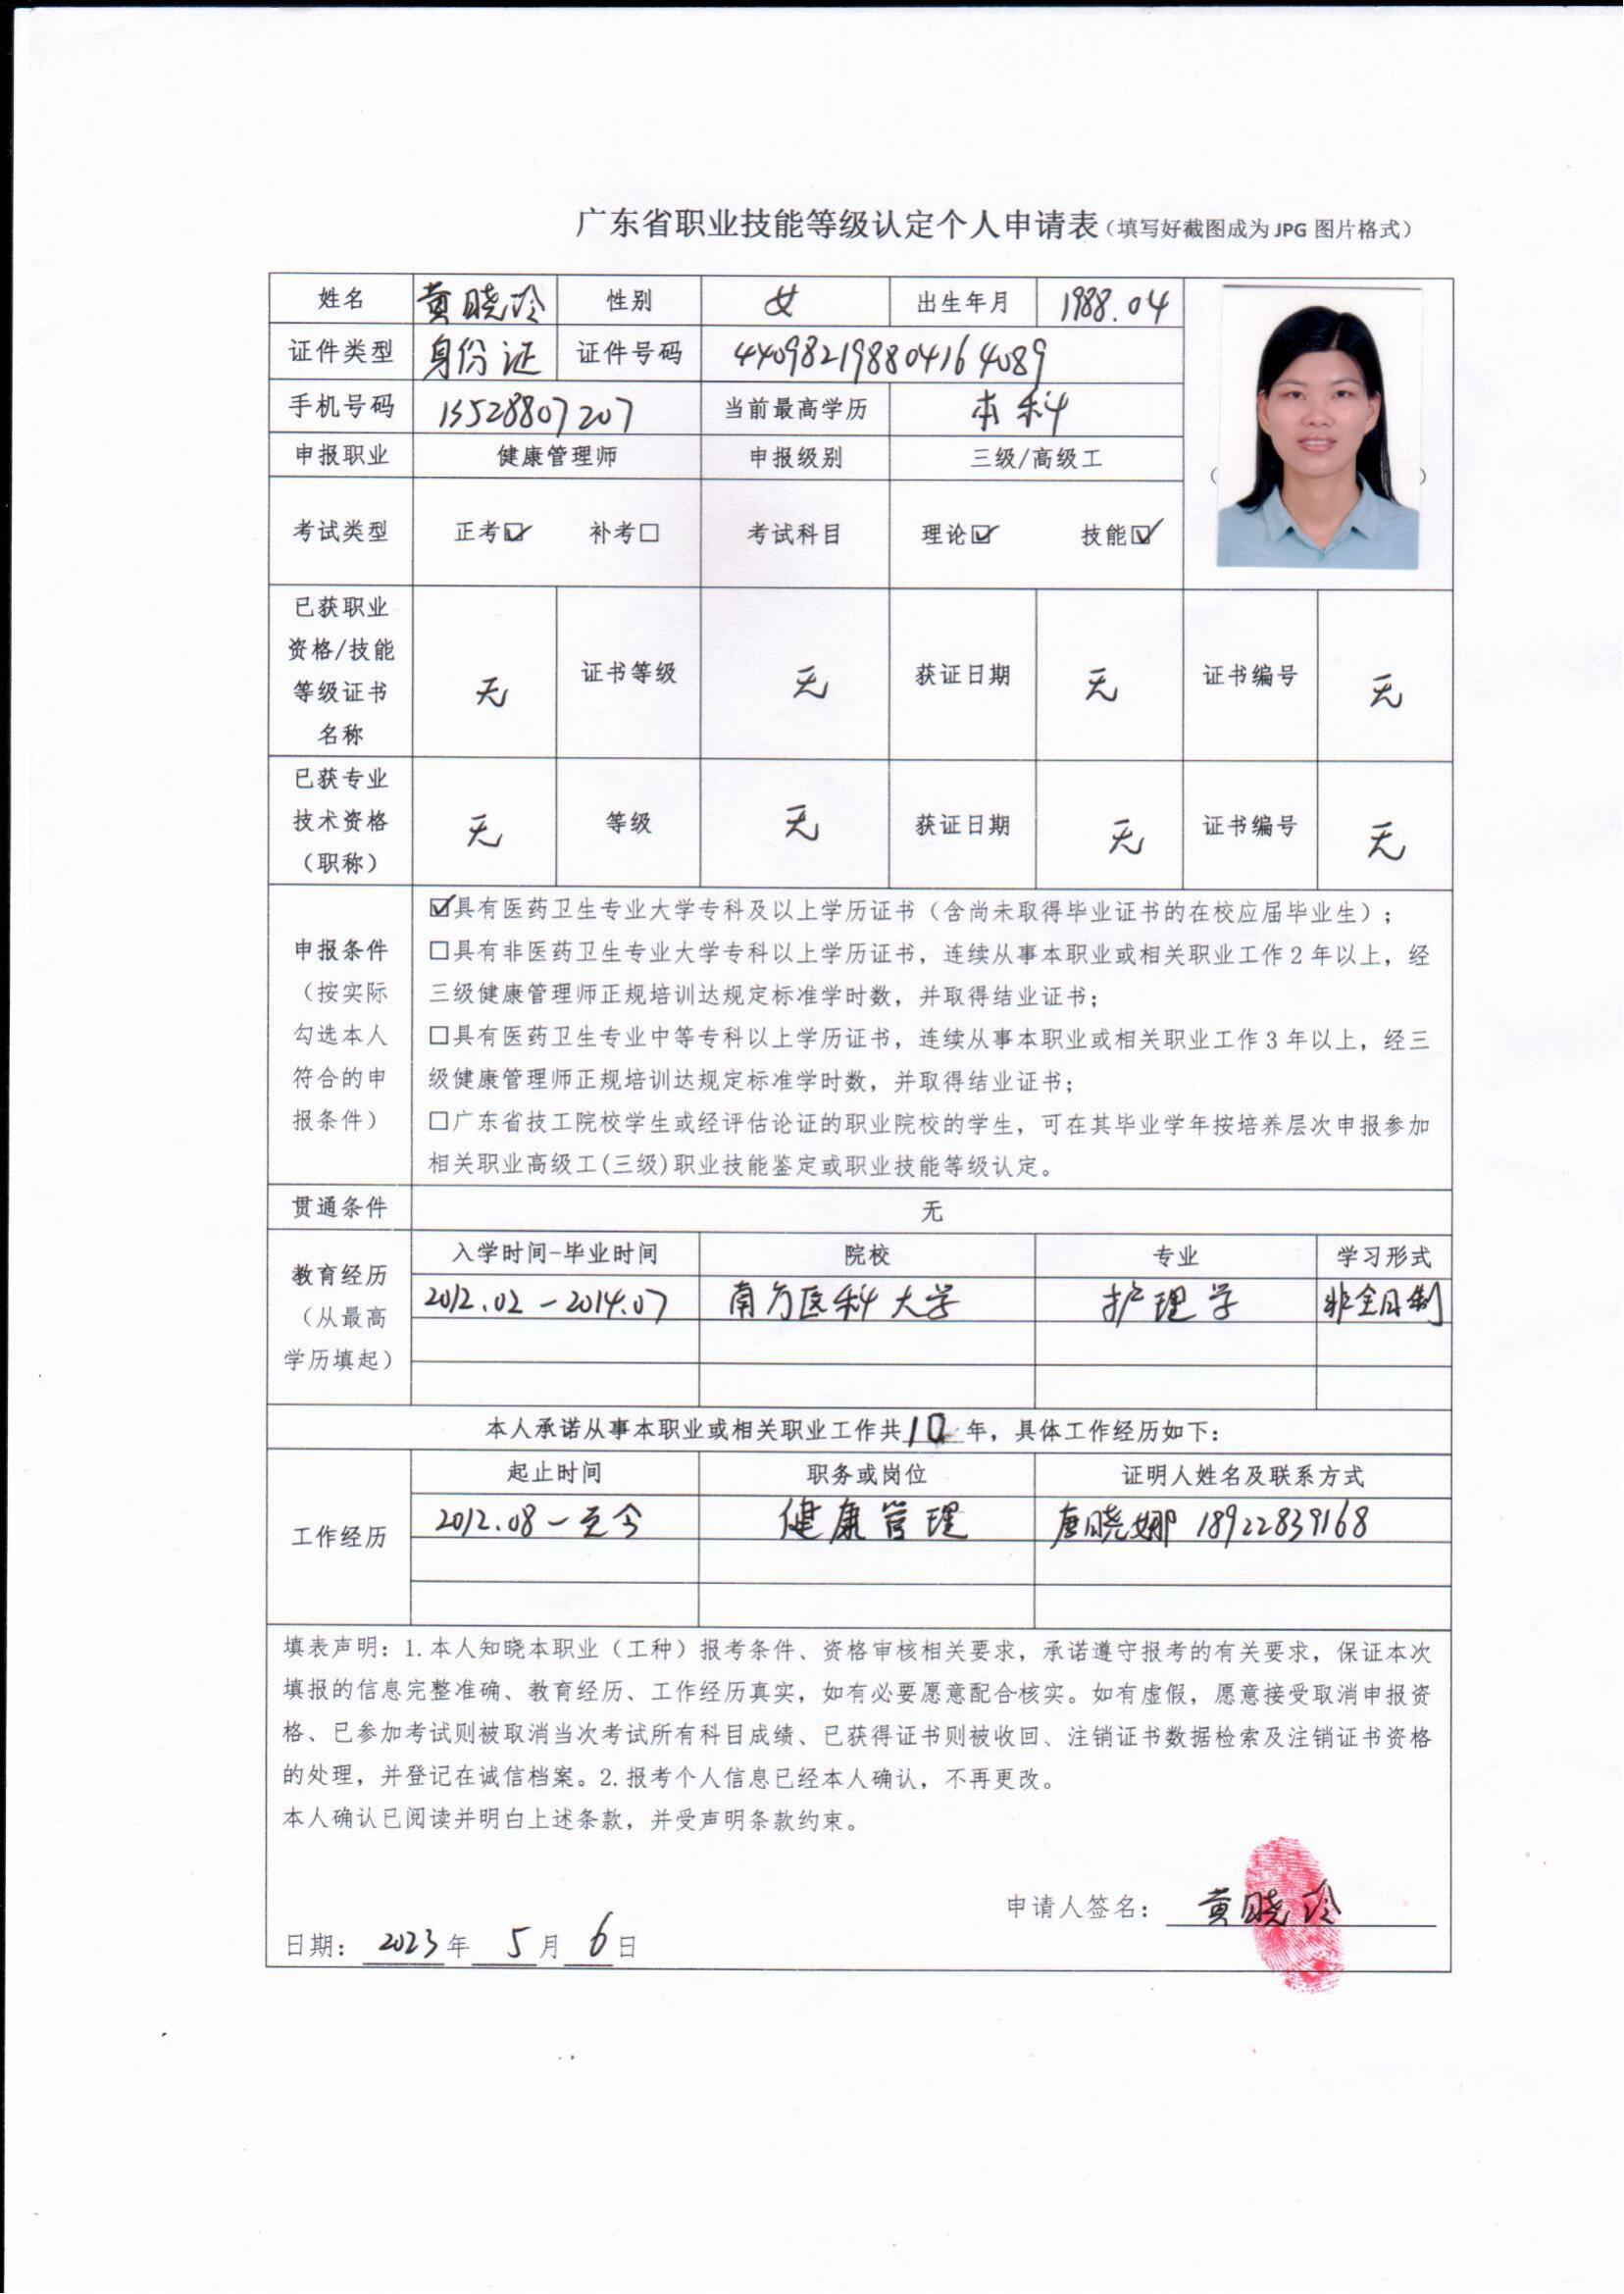 广东省职业技能等级认定个人申请表（填写好截图成为 JPG 图片格式）
姓名 黄晓玲 性别 女 出生年月 1988.04
证件类型 身份证 证件号码 440982198804164089
手机号码 13528807207 当前最高学历 本科
申报职业 健康管理师 申报级别 三级/高级工
（ ）
考试类型 正考☑ 补考☐ 考试科目 理论☑ 技能☑
已获职业
资格/技能
等级证书
名称
无 证书等级 无 获证日期 无 证书编号 无
已获专业
技术资格
（职称）
无 等级 无 获证日期 无 证书编号 无
申报条件
（按实际
勾选本人
符合的申
报条件）
☑具有医药卫生专业大学专科及以上学历证书（含尚未取得毕业证书的在校应届毕业生）；
☐具有非医药卫生专业大学专科以上学历证书，连续从事本职业或相关职业工作 2 年以上，经
三级健康管理师正规培训达规定标准学时数，并取得结业证书；
☐具有医药卫生专业中等专科以上学历证书，连续从事本职业或相关职业工作 3 年以上，经三
级健康管理师正规培训达规定标准学时数，并取得结业证书；
☐广东省技工院校学生或经评估论证的职业院校的学生，可在其毕业学年按培养层次申报参加
相关职业高级工(三级)职业技能鉴定或职业技能等级认定。
贯通条件 无
教育经历
（从最高
学历填起）
入学时间-毕业时间 院校 专业 学习形式
2012.02-2014.07 南方医科大学 护理学 非全日制
本人承诺从事本职业或相关职业工作共 10 年，具体工作经历如下：
工作经历
起止时间 职务或岗位 证明人姓名及联系方式
2012.08-至今 健康管理 唐晓娜 18922839168
填表声明：1.本人知晓本职业（工种）报考条件、资格审核相关要求，承诺遵守报考的有关要求，保证本次
填报的信息完整准确、教育经历、工作经历真实，如有必要愿意配合核实。如有虚假，愿意接受取消申报资
格、已参加考试则被取消当次考试所有科目成绩、已获得证书则被收回、注销证书数据检索及注销证书资格
的处理，并登记在诚信档案。2.报考个人信息已经本人确认，不再更改。
本人确认已阅读并明白上述条款，并受声明条款约束。
申请人签名： 黄晓玲
日期： 2023 年 5 月 6 日